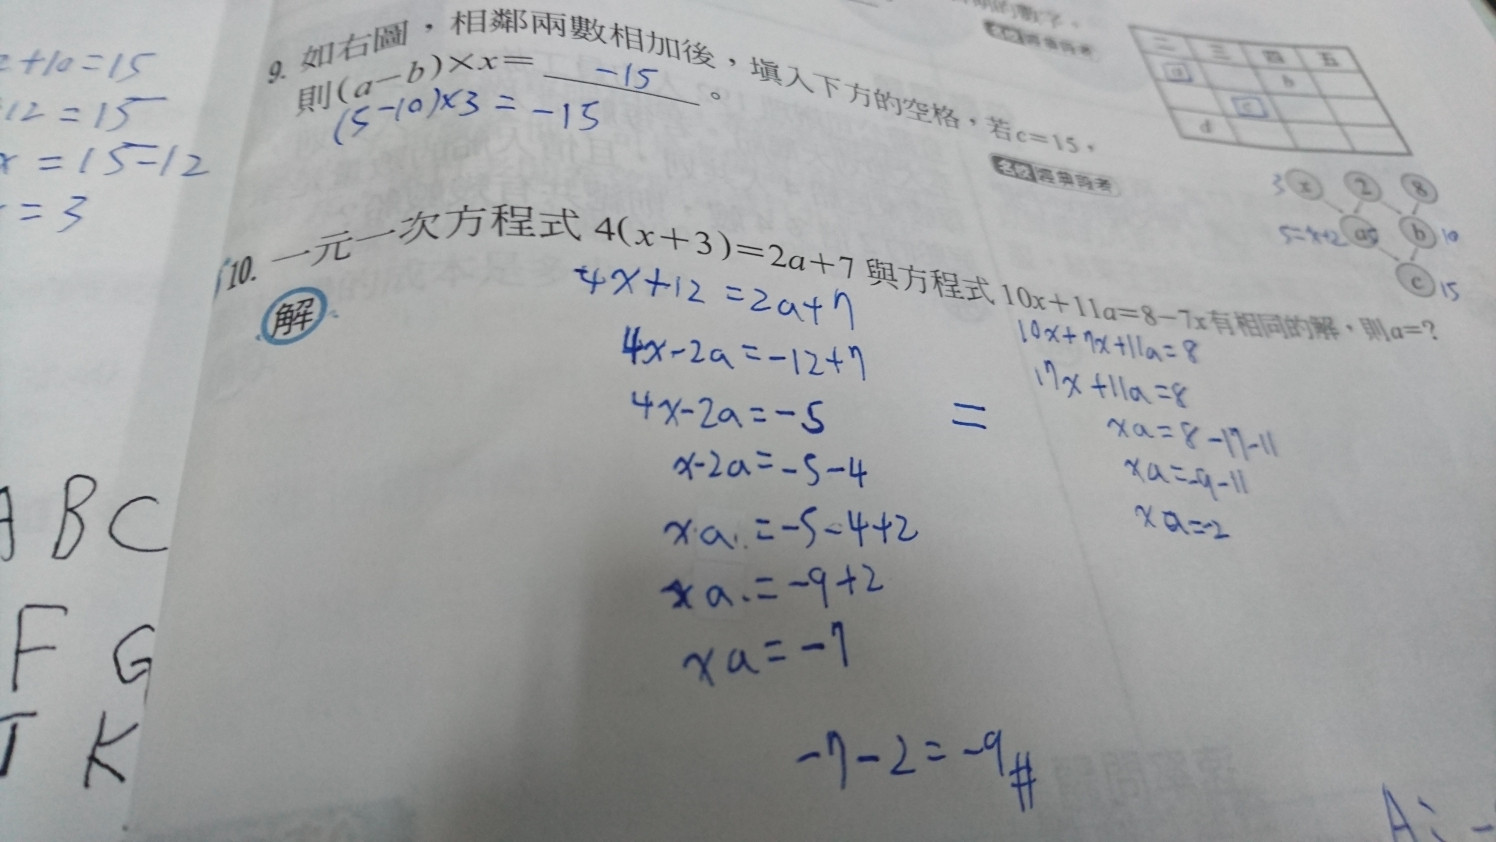 二 三 四 五
a b
c
d
+10=15
12=15
x=15-12
=3
9. 如右圖，相鄰兩數相加後，填入下方的空格，若c=15，
則(a-b)×x= -15 。
(5-10)×3=-15
3 x 2 8
5=x+2 a5 b 10
c 15
10. 一元一次方程式 4(x+3)=2a+7 與方程式 10x+11a=8-7x有相同的解，則a=?
解
4x+12=2a+7
4x-2a=-12+7
4x-2a=-5
x-2a=-5-4
xa=-5-4+2
xa=-9+2
xa=-7
=
10x+7x+11a=8
17x+11a=8
xa=8-17-11
xa=-9-11
xa=-2
-7-2=-9#
A: -
A B C
F G
K